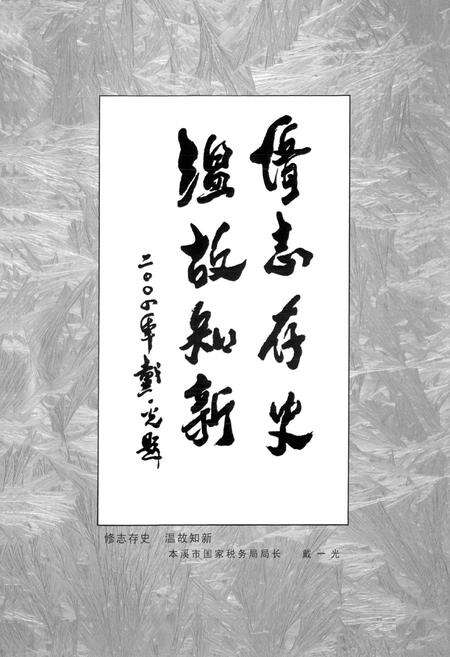 修志存史
温故知新
二〇〇四年戴一光题
修志存史　温故知新
本溪市国家税务局局长　戴一光